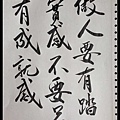 做人要有踏
實感不要只
有成就感